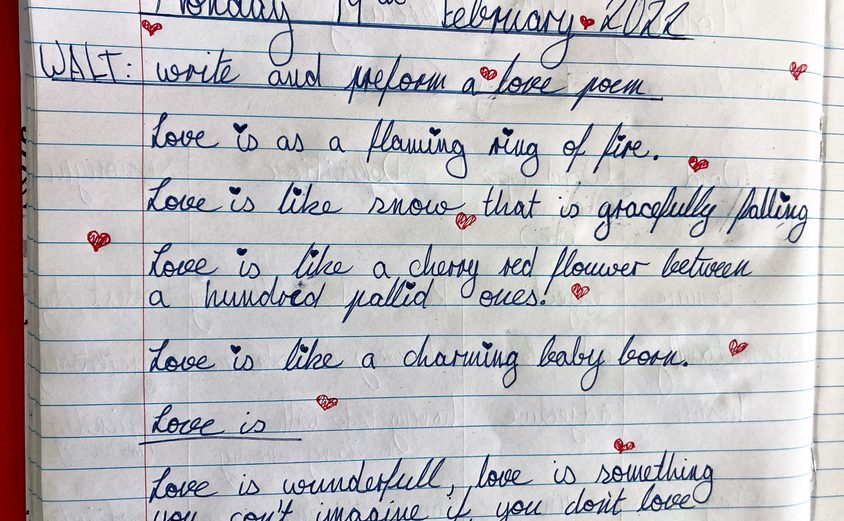 Monday 14th February 2022
WALT: write and preform a love poem
Love is as a flaming ring of fire.
Love is like snow that is gracefully falling
Love is like a cherry red flouwer between
a hundrid pallid ones.
Love is like a charming baby born.
Love is
Love is wunderfull, love is something
you can't imagine if you don't love